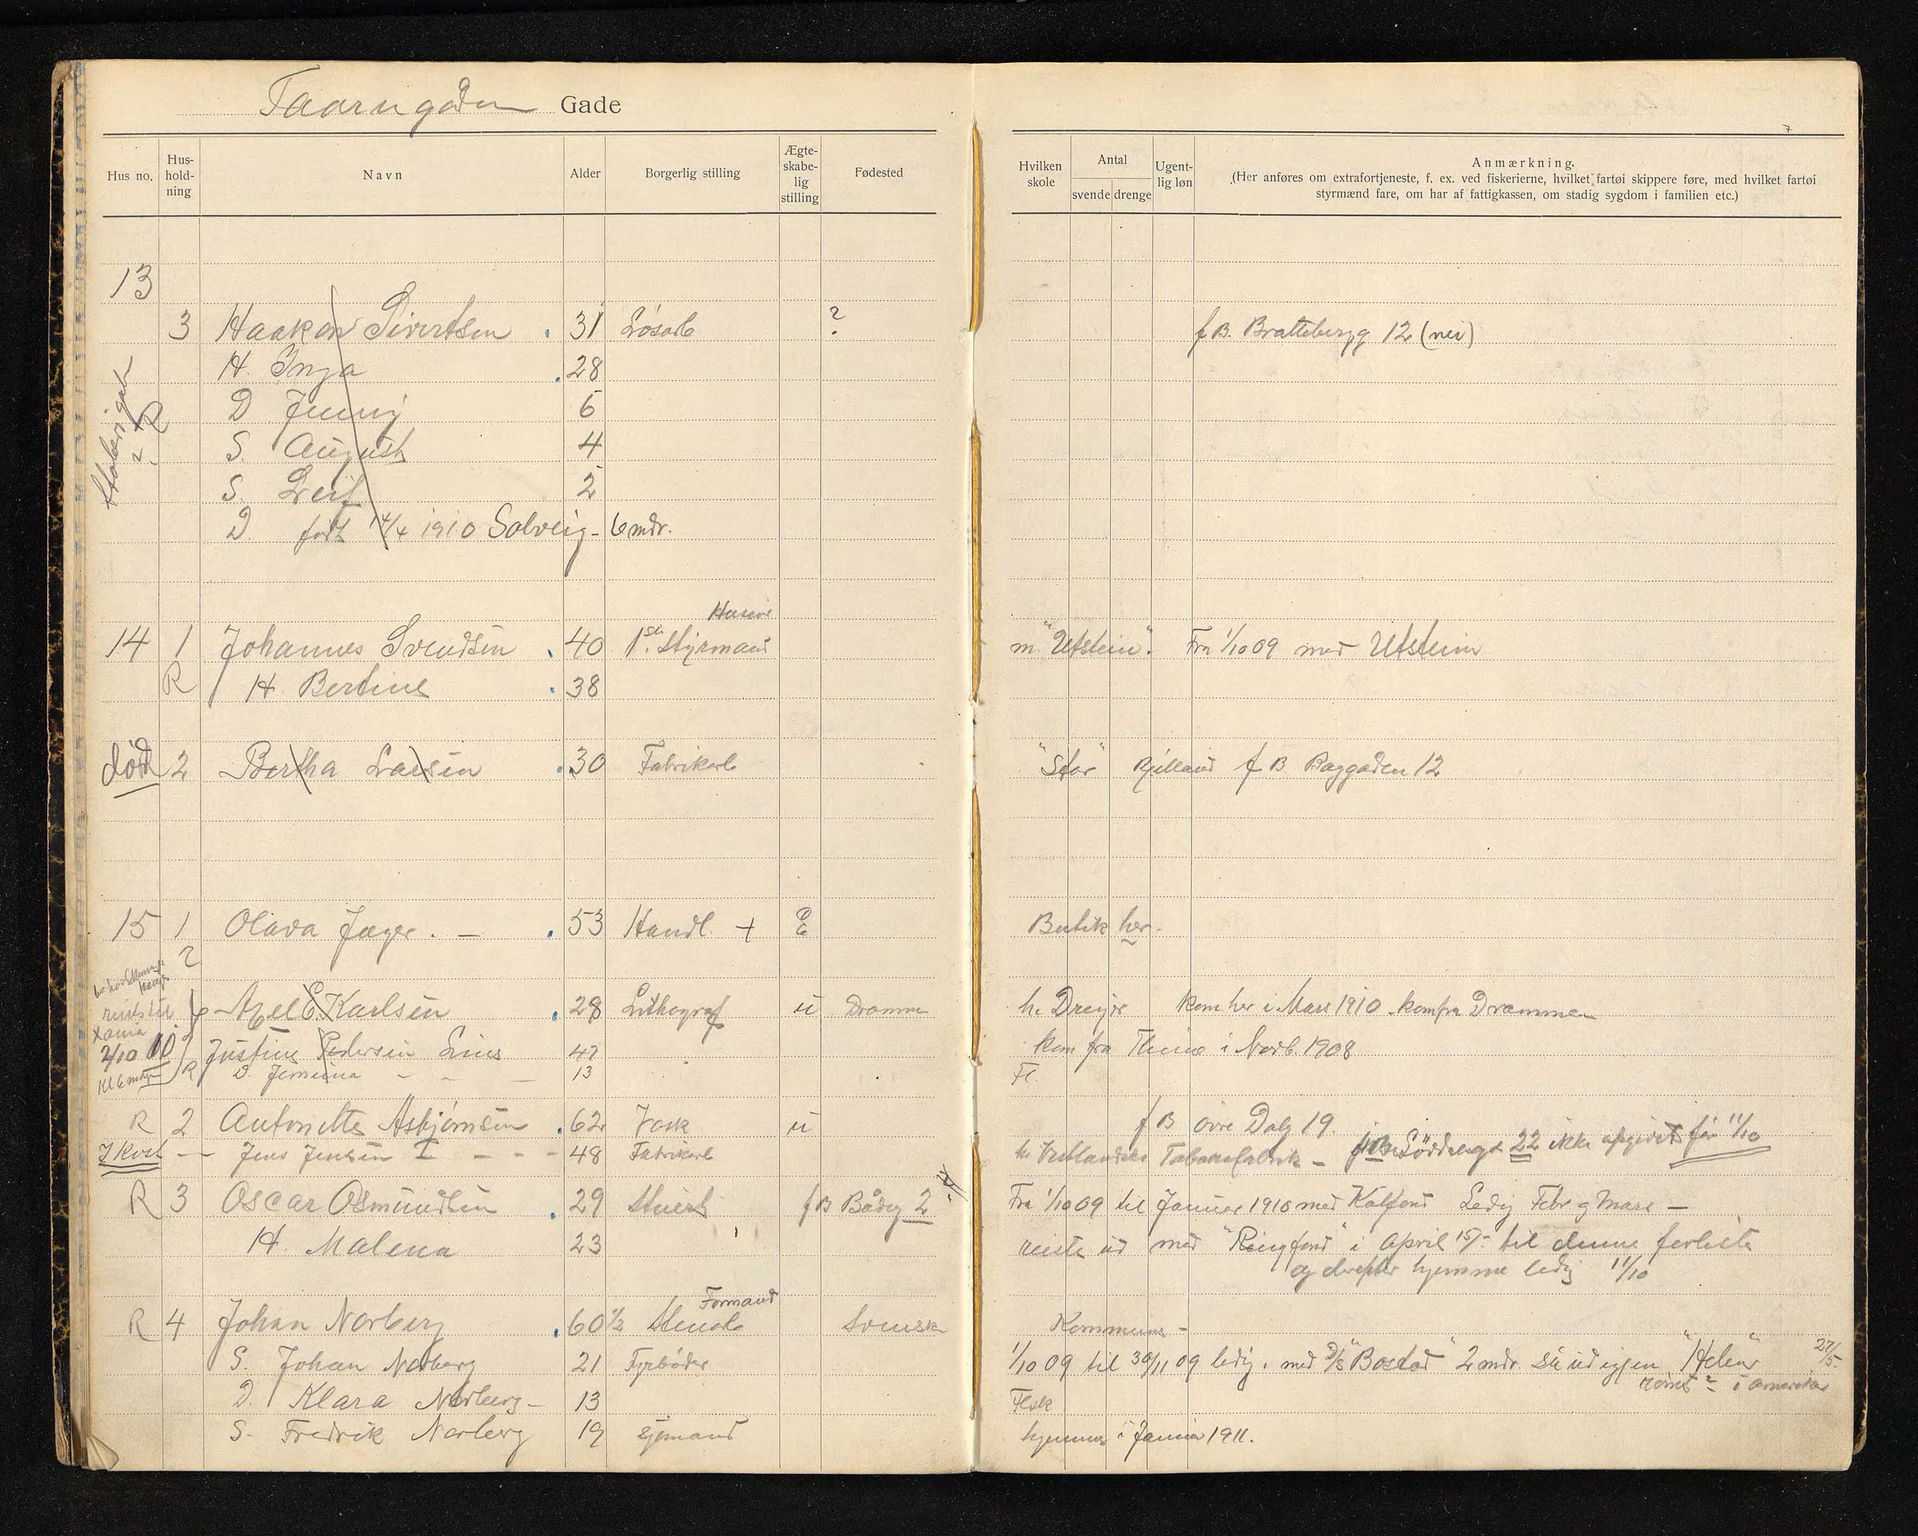 Taarngaden Gade
Hus no. Hus-hold-ning Navn Alder Borgerlig stilling Ægte-skabe-lig stilling Fødested
Hvilken skole Antal svende drenge Ugent-lig løn Anmærkning.
(Her anføres om extrafortjeneste, f. ex. ved fiskerierne, hvilket fartøi skippere føre, med hvilket fartøi
styrmænd fare, om har af fattigkassen, om stadig sygdom i familien etc.)
13
3 Haakon Sivertsen 31 Løsarb ? f B. Bratteberg 12 (nei)
H. Inga 28
D Jenny 6
R
S. August 4
S. Leif 2
D født 14/4 1910 Solveig - 6 mdr.
Huseier
14 1 Johannes Svendsen 40 1ste Styrmand m. "Utstein". Fra 1/10 09 med Utstein
R H. Bertine 38
død 2 Bertha Larsen 30 Fabrikarb "Star" Kjelland f B Baggaden 12
15 1 Olava Jæger. - 53 Handl. + E Butik her.
2
Axel E Karlsen 28 Lithograf u Dramme h. Dreyer kom her i Mars 1910 - kom fra Drammen
2/10 10 Justine Pedersen Lines 42 kom fra Thime i Novb. 1908
R D. Jemima - - - 13 Fl.
R 2 Antonette Asbjørnsen 62 Vask u f B øvre Dalg 19.
I kvit - Jens Jensen I - - - 48 Fabrikarb h. Vestlandske Tobaksfabrik - 22 ikke opgivet før 11/10
R 3 Oscar Osmundsen 29 Stuert f B Bådeg 2 Fra 1/10 09 til Januar 1910 med Kolfond Ledig Febr og Mars -
H. Malena 23 reiste ud med "Ringfond" i April 15/- til denne forliste
og derefter hjemme ledig 11/10
Formand
R 4 Johan Norberg 60 1/2 Stenarb Svensk Kommune -
S. Johan Norberg 21 Fyrbøder 1/10 09 til 30/11 09 ledig. med D/S "Bosdad" 2 mdr. Så ud igjen "Helen" 27/5.
rømt i Amerika
D. Klara Norberg - 13 Flsk
S. Fredrik Norberg 19 sjømand hjemme i Januar 1911.